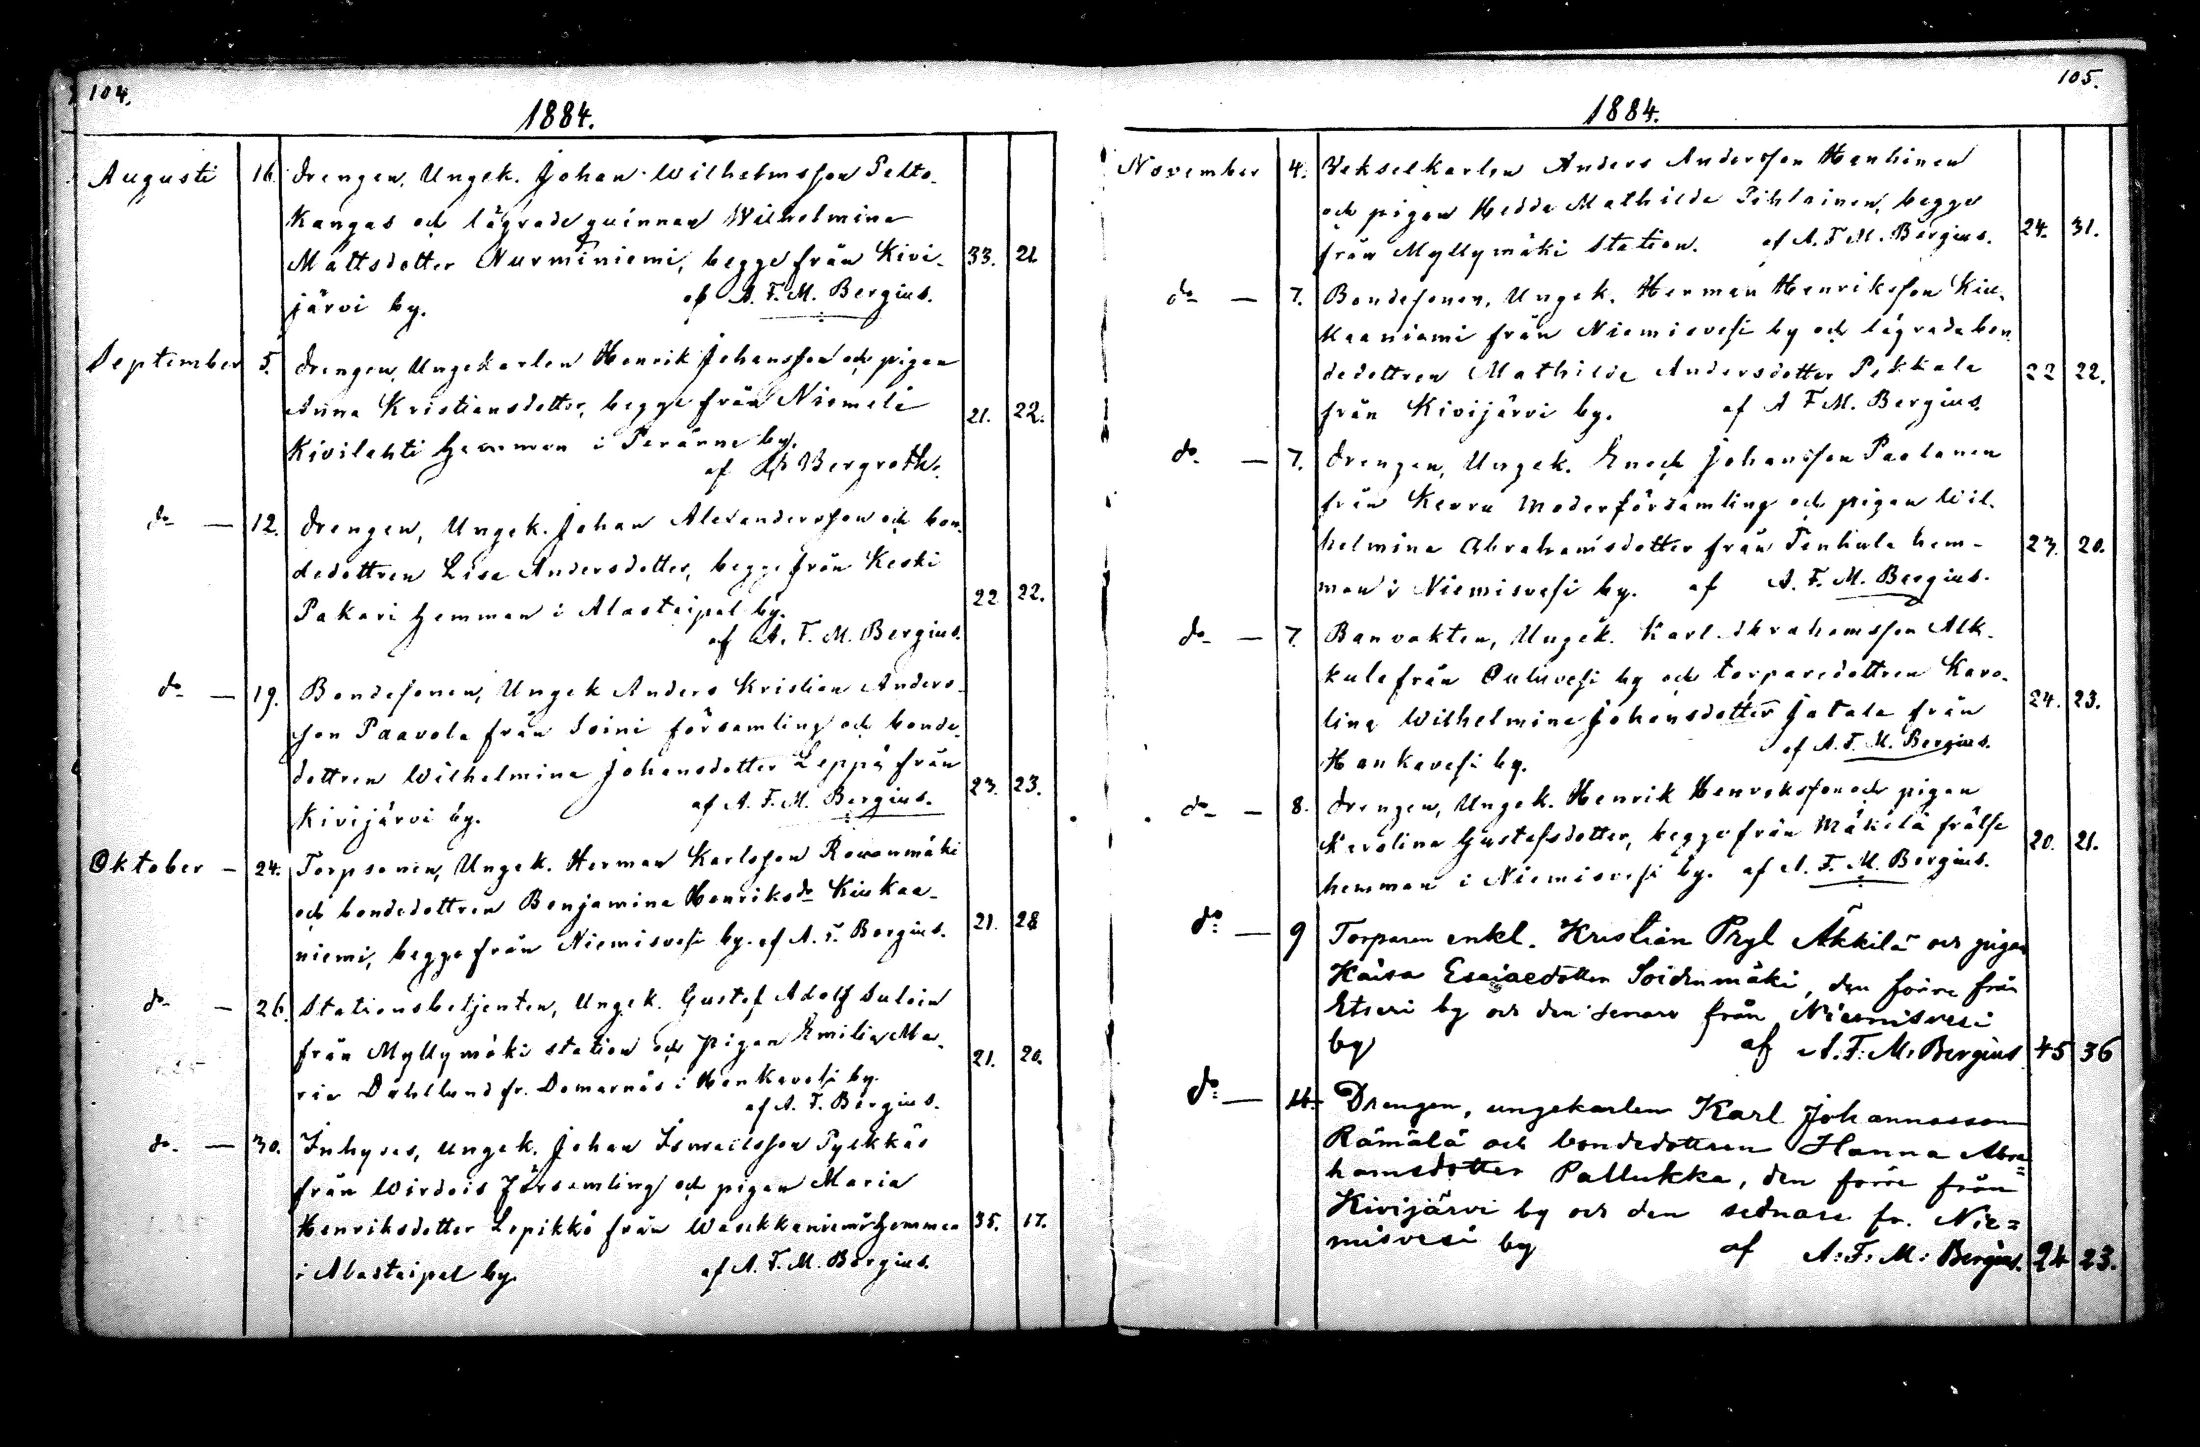 104.
1884.
Augusti 16. Drengen, Ungek. Johan Wilhelmsson Pelto-
kangas och lägradequinnan Wilhelmina
Mattsdotter Nurminiemi, begge från Kivi- 33. 21
järvi by. af A. F. M. Bergius.
September 5. Drengen, Ungekarlen Henrik Johansson och pigan
Anna Kristiansdotter, begge från Niemelä 21. 22.
Kivilahti hemman i Peränne by.
af Bergroth.
do — 12. Drengen, Ungek. Johan Alexandersson och bon-
dedottren Lisa Andersdotter, begge från Keski
Pakari hemman i Alastaipal by. 22 22.
af A. F. M. Bergius.
do — 19. Bondesonen, Ungek Anders Kristian Anders-
son Paavola från Soini församling och bonde-
dottren Wilhelmina Johansdotter Leppä från 23. 23.
Kivijärvi by. af A. F. M. Bergius.
Oktober — 24. Torpsonen, Ungek. Herman Karlsson Rovanmäki
och bondedottren Benjamina Henriksdr Kiukaa-
niemi, begge från Niemisvesi by. af A. F. Bergius. 21. 28
do — 26. Stationsbetjenten, Ungek. Gustaf Adolf Sulin
från Myllymäki station och pigan Emilia Ma-
ria Dahllund fr. Domarnäs i Hankavesi by. 21. 20.
af A. F. Bergius.
do — 30. Inhyses, Ungek. Johan Ismaelsson Pylkkäs
från Wirdois församling och pigan Maria
Henriksdotter Lepikkö från Wäckkäniemi hemman 35. 17.
i Alastaipal by. af A. F. M. Bergius.
105.
1884.
November 4. Vekselkarlen Anders Andersson Hanhinen
och pigan Hedda Mathilda Pihlainen, begge
från Myllymäki Station. af A. F. M. Bergius. 24. 31.
do — 7. Bondesonen, Ungek. Herman Henriksson Kiu-
kaaniemi från Niemisvesi by och lägrade bon-
dedottren Mathilda Andersdotter Pekkala 22 22.
från Kivijärvi by. af A F M. Bergius.
do — 7. Drengen, Ungek. Enoch Johansson Paalanen
från Keuru Moderförsamling och pigan Wil-
helmina Abrahamsdotter från Tenhula hem- 23. 20.
man i Niemisvesi by. af A. F. M. Bergius.
do — 7. Banvakten, Ungek. Karl Abrahamsson Alk-
kula från Ouluvesi by och torparedottren Karo-
lina Wilhelmina Johansdotter Jatala från 24. 23.
Hankavesi by. af A. F. M. Bergius.
do — 8. Drengen, Ungek. Henrik Henriksson och pigan
Karolina Gustafsdotter, begge från Mäkelä frälse 20. 21.
hemman i Niemisvesi by. af A. F. M. Bergius.
do — 9 Torparen enkl. Kristian Pryl Äkkilä och pigan
Kaisa Esaiaedotter Soidinmäki, den förre från
Etseri by och den senare från Niemisvesi
by af A. F: M: Bergius 45 36
do — 14 Drengen, ungekarlen Karl Johannesson
Rämälä och bondedottren Hanna Abra=
hamsdotter Pallukka, den förre från
Kivijärvi by och den sednare fr. Nie=
misvesi by af A: F: M: Bergius. 24 23.